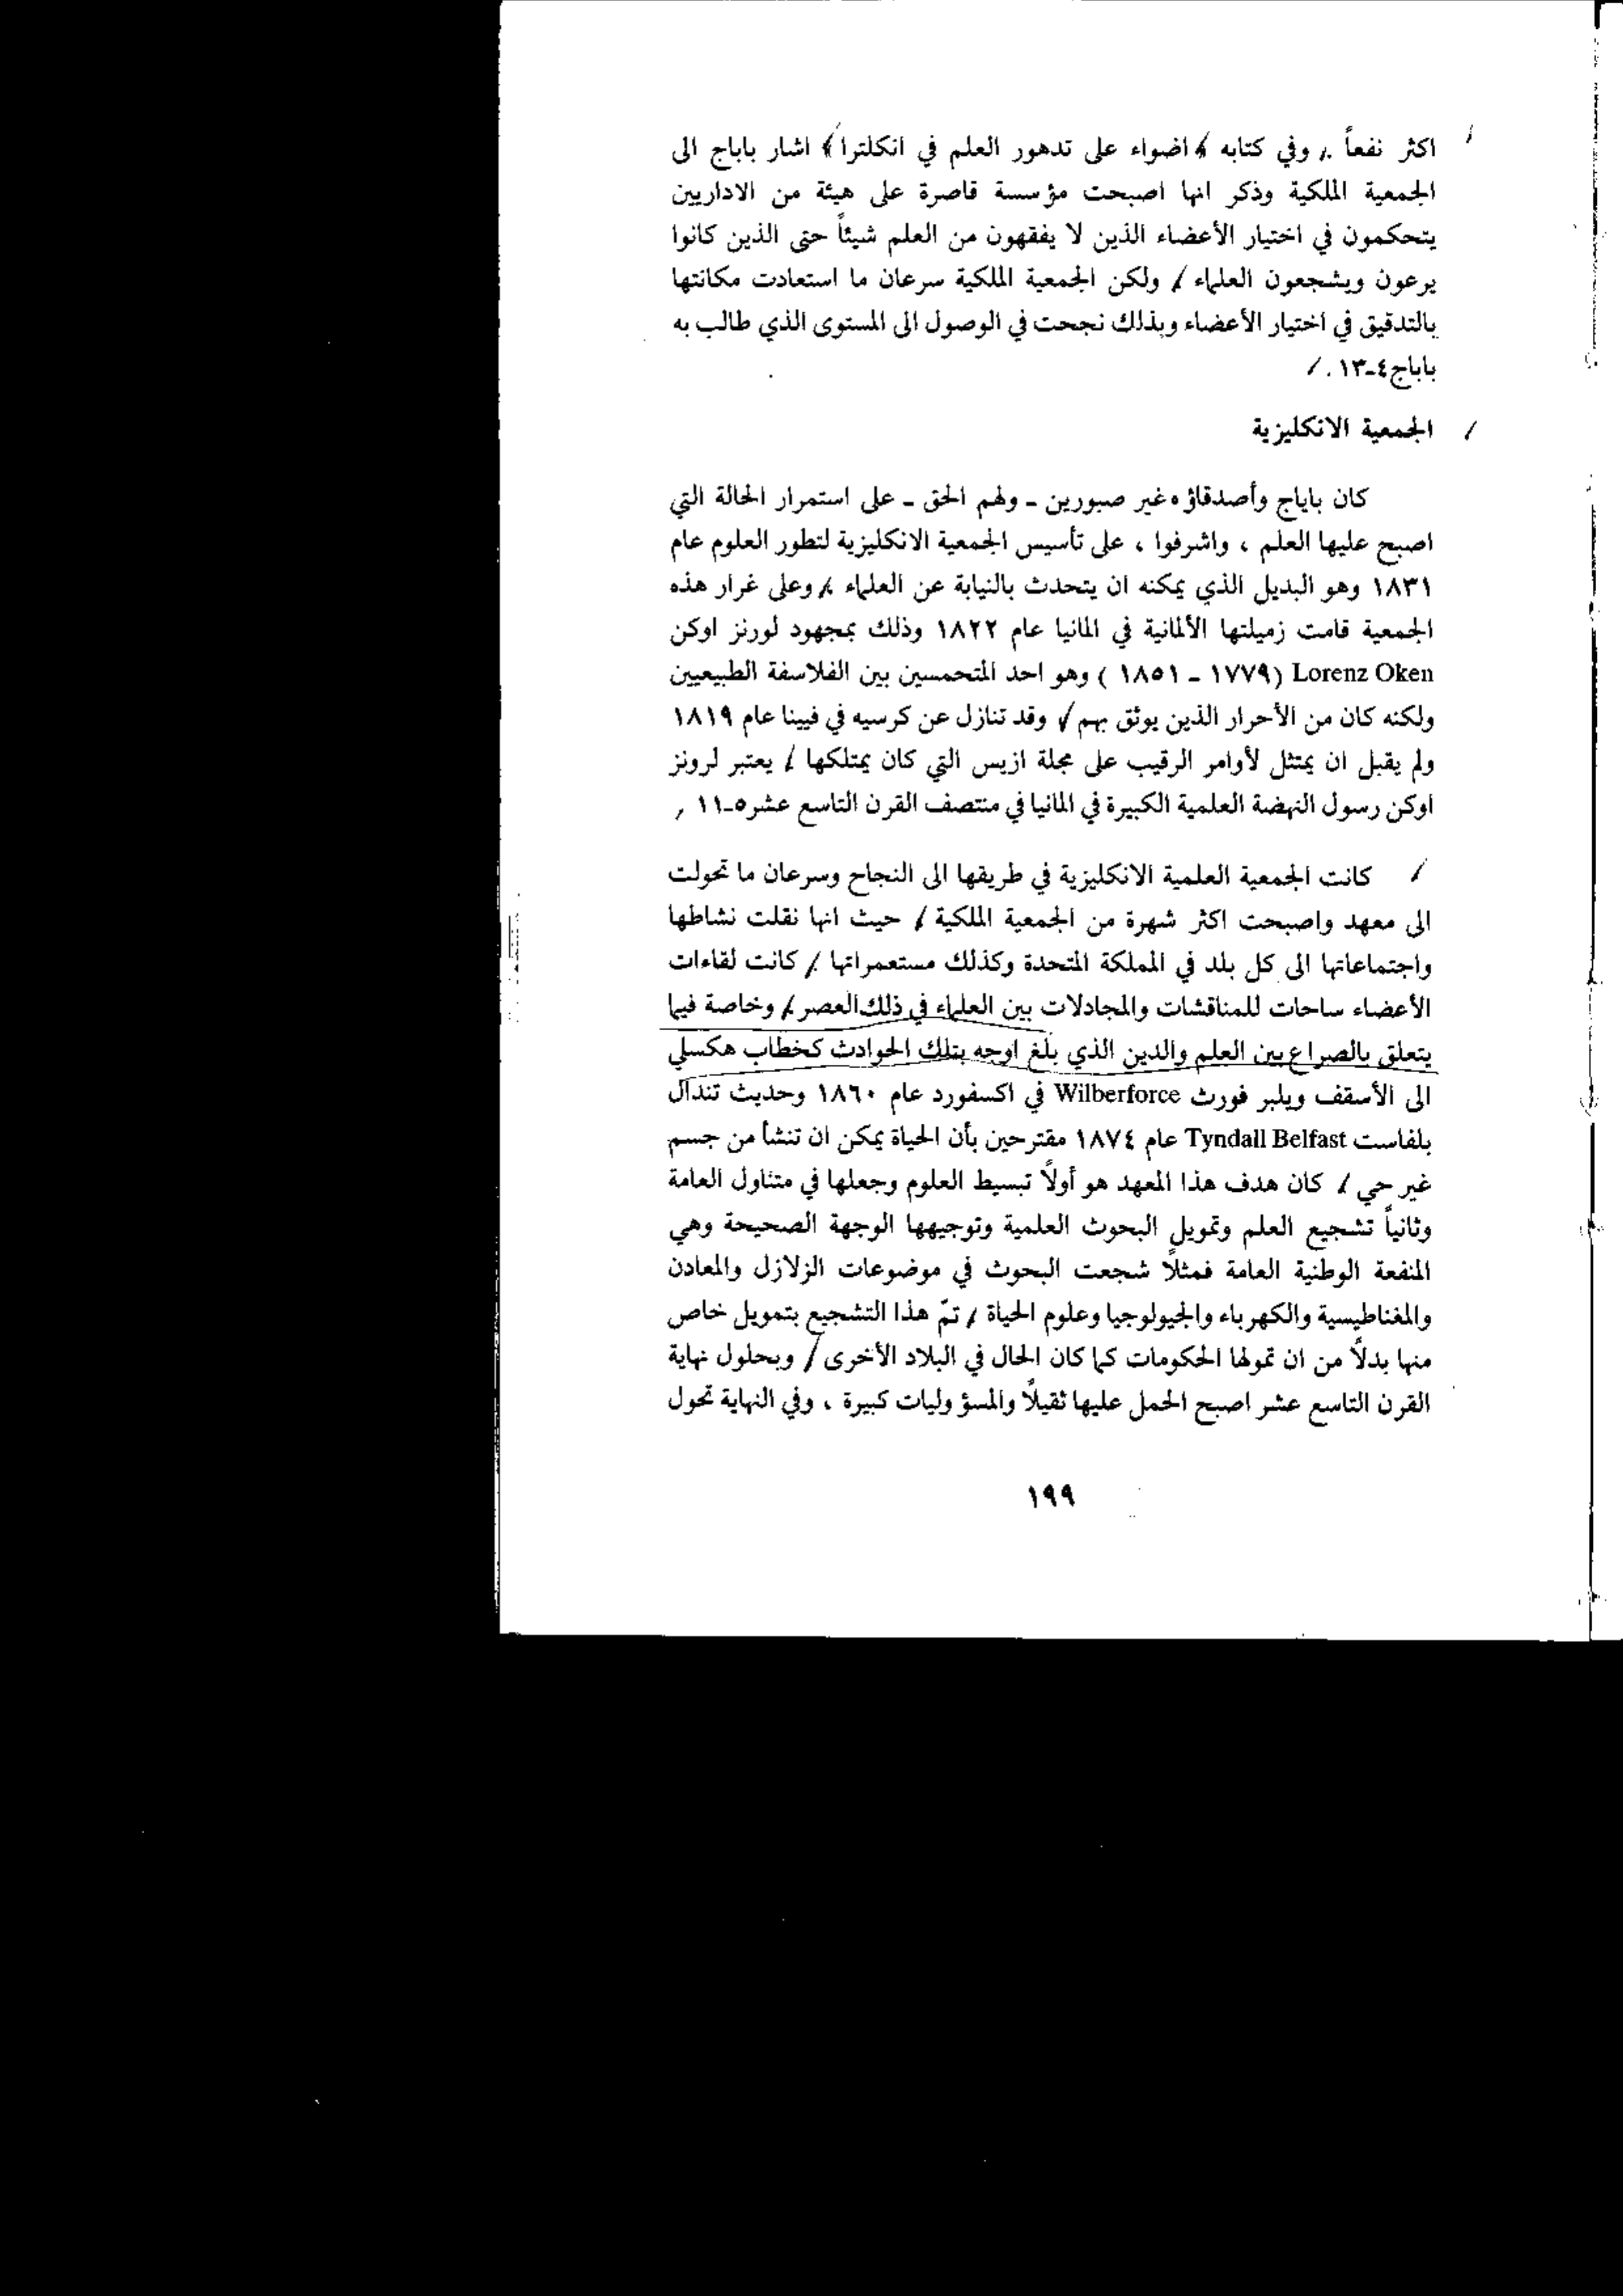 اكثر نفعاً . وفي كتابه « اضواء على تدهور العلم في انكلترا » اشار باباج الى
الجمعية الملكية وذكر انها اصبحت مؤسسة قاصرة على هيئة من الاداريين
يتحكمون في اختيار الأعضاء الذين لا يفقهون من العلم شيئاً حتى الذين كانوا
يرعون ويشجعون العلماء / ولكن الجمعية الملكية سرعان ما استعادت مكانتها
بالتدقيق في اختيار الأعضاء وبذلك نجحت في الوصول الى المستوى الذي طالب به
باباج٤-١٣ . /
/ الجمعية الانكليزية
كان باياج وأصدقاؤه غير صبورين - ولهم الحق - على استمرار الحالة التي
اصبح عليها العلم ، واشرفوا ، على تأسيس الجمعية الانكليزية لتطور العلوم عام
١٨٣١ وهو البديل الذي يمكنه ان يتحدث بالنيابة عن العلماء / وعلى غرار هذه
الجمعية قامت زميلتها الألمانية في المانيا عام ١٨٢٢ وذلك بمجهود لورنز اوكن
Lorenz Oken (١٧٧٩ - ١٨٥١ ) وهو احد المتحمسين بين الفلاسفة الطبيعيين
ولكنه كان من الأحرار الذين يوثق بهم / وقد تنازل عن كرسيه في فيينا عام ١٨١٩
ولم يقبل ان يمتثل لأوامر الرقيب على مجلة ازيس التي كان يمتلكها / يعتبر لرونز
اوكن رسول النهضة العلمية الكبيرة في المانيا في منتصف القرن التاسع عشر٥-١١ ,
/ كانت الجمعية العلمية الانكليزية في طريقها الى النجاح وسرعان ما تحولت
الى معهد واصبحت اكثر شهرة من الجمعية الملكية / حيث انها نقلت نشاطها
واجتماعاتها الى كل بلد في المملكة المتحدة وكذلك مستعمراتها / كانت لقاءات
الأعضاء ساحات للمناقشات والمجادلات بين العلماء في ذلك العصر / وخاصة فيما
يتعلق بالصراع بين العلم والدين الذي بلغ اوجه بتلك الحوادث كخطاب هكسلي
الى الأسقف ويلبر فورث Wilberforce في اكسفورد عام ١٨٦٠ وحديث تندال
بلفاست Tyndall Belfast عام ١٨٧٤ مقترحين بأن الحياة يمكن ان تنشأ من جسم
غير حي / كان هدف هذا المعهد هو أولاً تبسيط العلوم وجعلها في متناول العامة
وثانياً تشجيع العلم وتمويل البحوث العلمية وتوجيهها الوجهة الصحيحة وهي
المنفعة الوطنية العامة فمثلاً شجعت البحوث في موضوعات الزلازل والمعادن
والمغناطيسية والكهرباء والجيولوجيا وعلوم الحياة / تمّ هذا التشجيع بتمويل خاص
منها بدلاً من ان تمولها الحكومات كما كان الحال في البلاد الأخرى / وبحلول نهاية
القرن التاسع عشر اصبح الحمل عليها ثقيلاً والمسؤوليات كبيرة ، وفي النهاية تحول
١٩٩